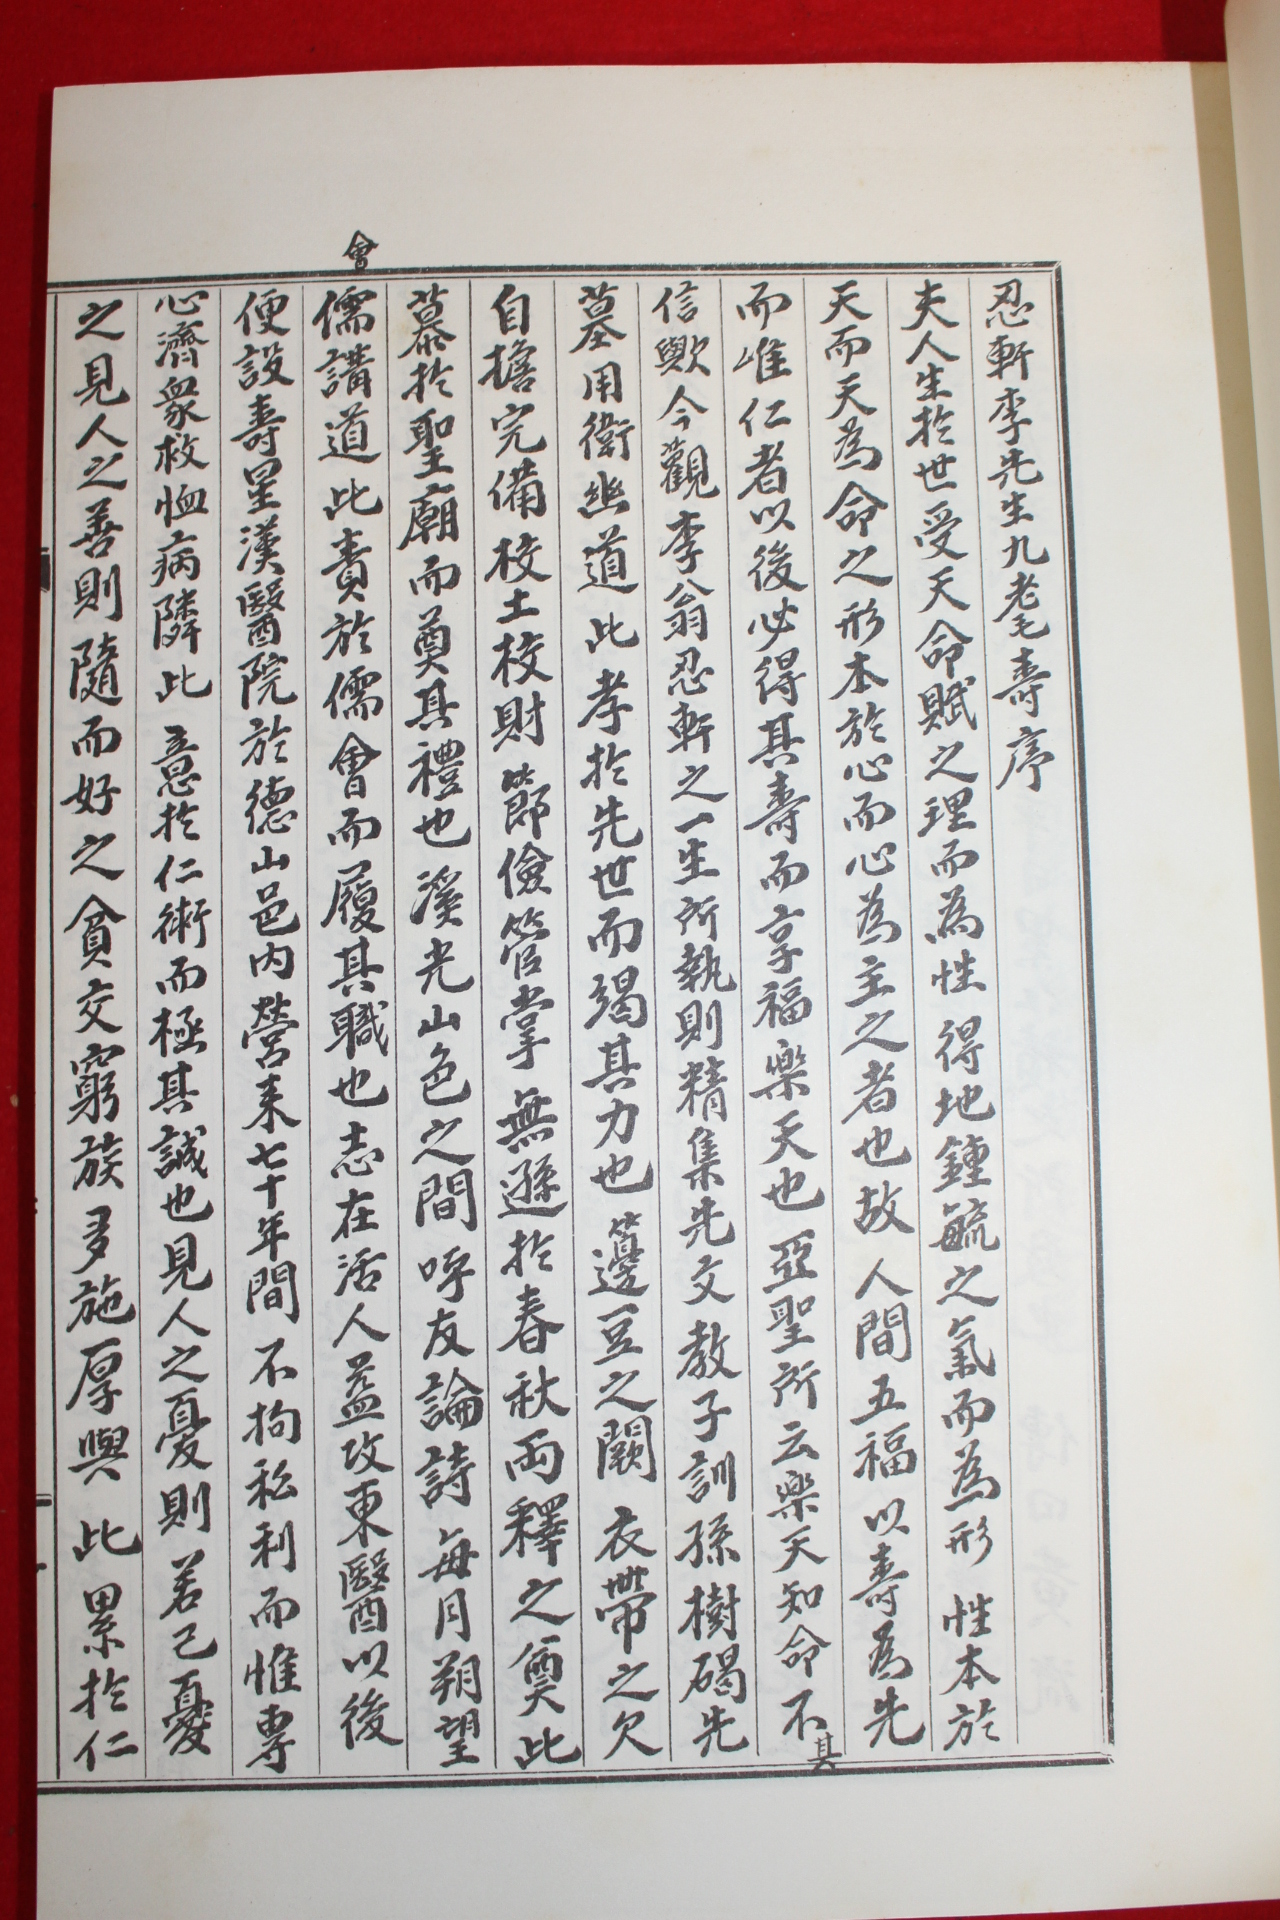 會
忍軒李先生九耄壽序
夫人生於世受天命賦之理而為性得地鍾毓之氣而為形性本於
天而天為命之形本於心而心為主之者也故人間五福以壽為先
而唯仁者以後必得其壽而享福樂天也亞聖所云樂天知命不其
信歟今觀李翁忍軒之一生所執則精集先文教子訓孫樹碣先
墓用衛幽道此孝於先世而竭其力也籩豆之闕衣帶之欠
自擔完備校土校財節儉管掌無遜於春秋兩釋之奠此
慕於聖廟而奠其禮也溪光山色之間呼友論詩每月朔望
儒講道此責於儒會而履其職也志在活人益攻東醫以後
便設壽星漢醫院於德山邑內營來七十年間不拘私利而惟專
心濟衆救恤病隣此意於仁術而極其誠也見人之憂則若己憂
之見人之善則隨而好之貧交窮族多施厚與此累於仁